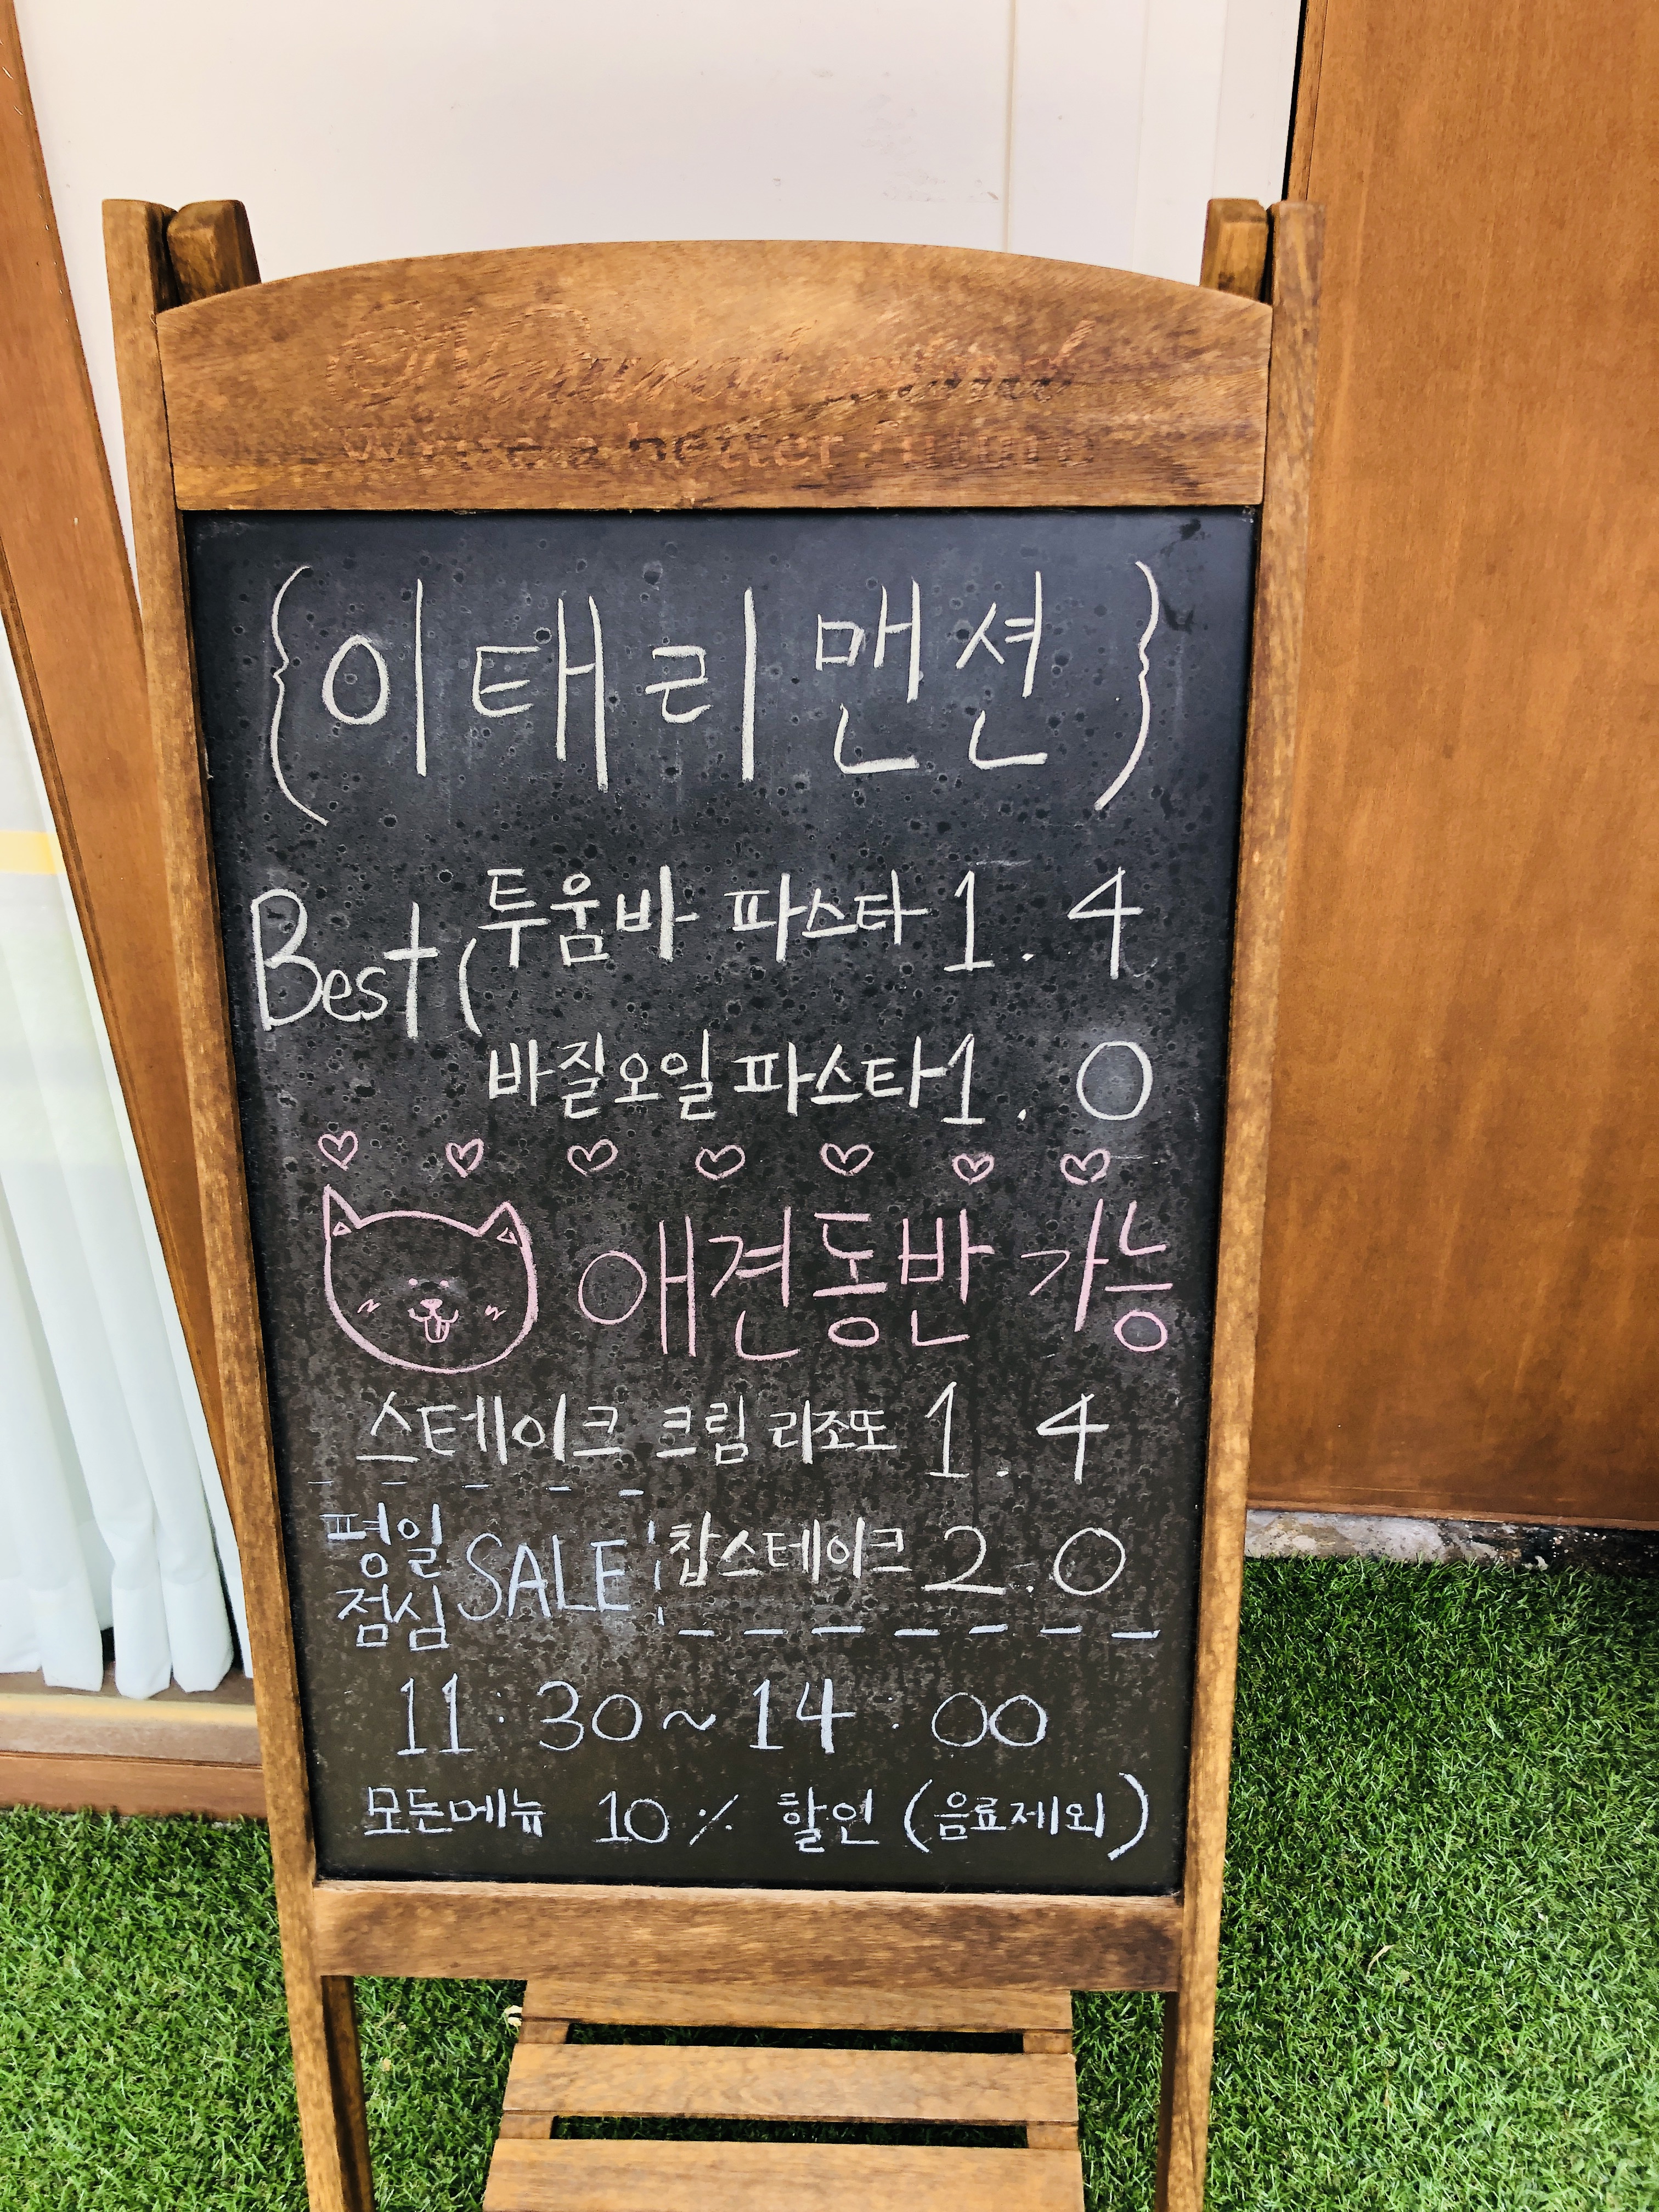 {이태리 맨션}
Best (투움바 파스타 1.4
바질오일 파스타 1.0
애견동반 가능
스테이크 크림 리조또 1.4
찹스테이크 2.0
평일 점심 SALE
11:30~14:00
모든메뉴 10% 할인 (음료제외)